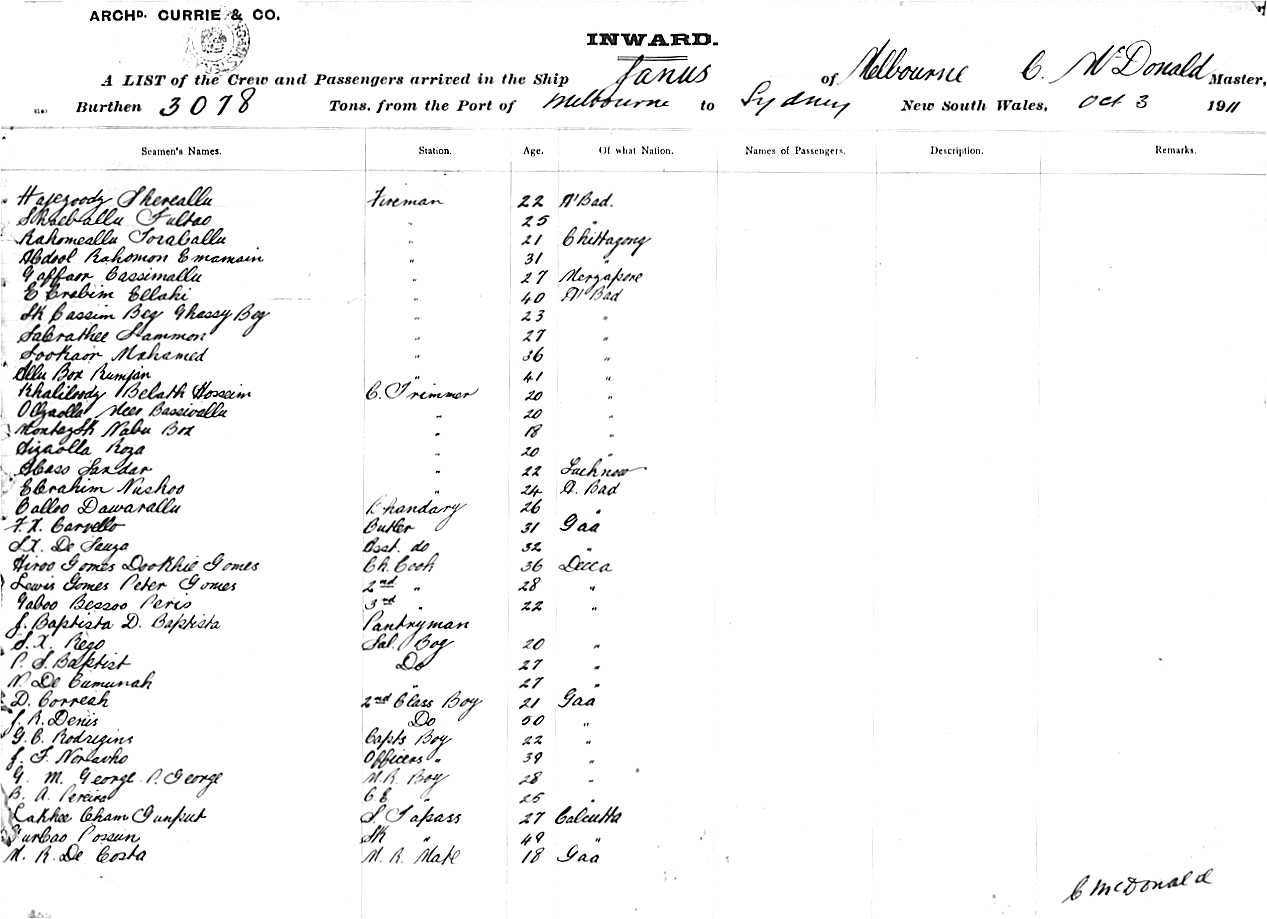 ARCHD. CURRIE & CO.
INWARD.
A LIST of the Crew and Passengers arrived in the Ship Janus of Melbourne C. McDonald Master,
Burthen 3078 Tons, from the Port of Melbourne to Sydney New South Wales, Oct 3 1911
Seamen's Names. Station. Age. Of what Nation. Names of Passengers. Description. Remarks.
Shereallu Fireman 22 A'Bad.
" 25 "
Rahomeallu Toraballu " 21 Chittagong
Abdool Rahomon Emamain " 31 "
Gaffaor Cassimallu " 27 Merzapore
E Erabim Ellahi " 40 A'Bad
Sk Cassim Beg Ghassy Beg " 23 "
Sabrathee Sammon " 27 "
Sookaor Mahamed " 36 "
Ellu Box Rumjan " 41 "
Khaliloody Belath Hossein C. Trimmer 20 "
Meer Bassivallu " 20 "
Nabu Box " 18 "
Sizaolla Roza " 20 "
Abass Sandar " 22 Lucknow
Ebrahim Nushoo " 24 A. Bad
Calloo Dawarallu Bhandary 26 "
F. X. Carvello Butler 31 Gaa
S. X. De Souza Asst. do 32 "
Hiroo Gomes Dookhie Gomes Ch. Cook 36 Decca
Lewis Gomes Peter Gomes 2nd " 28 "
Gaboo Bessoo Peris 3rd " 22 "
J. Baptista D. Baptista Pantryman
S. X. Rego Sal. Boy 20 "
P. S. Baptist Do 27 "
N. De Cumunah " 27 "
D. Correah 2nd Class Boy 21 Gaa
J. R. Denis Do 50 "
G. C. Rodrigins Capts Boy 22 "
J. F. Noronho Officers " 39 "
G. M. George P. George M. R. Boy 28 "
B. A. Pereira C.E " 25 "
Lakhee Cham Gunput S. Topass 27 Calcutta
Turbao Possun Sk " 49 "
M. R. De Costa M. R. Mate 18 Gaa
C McDonald